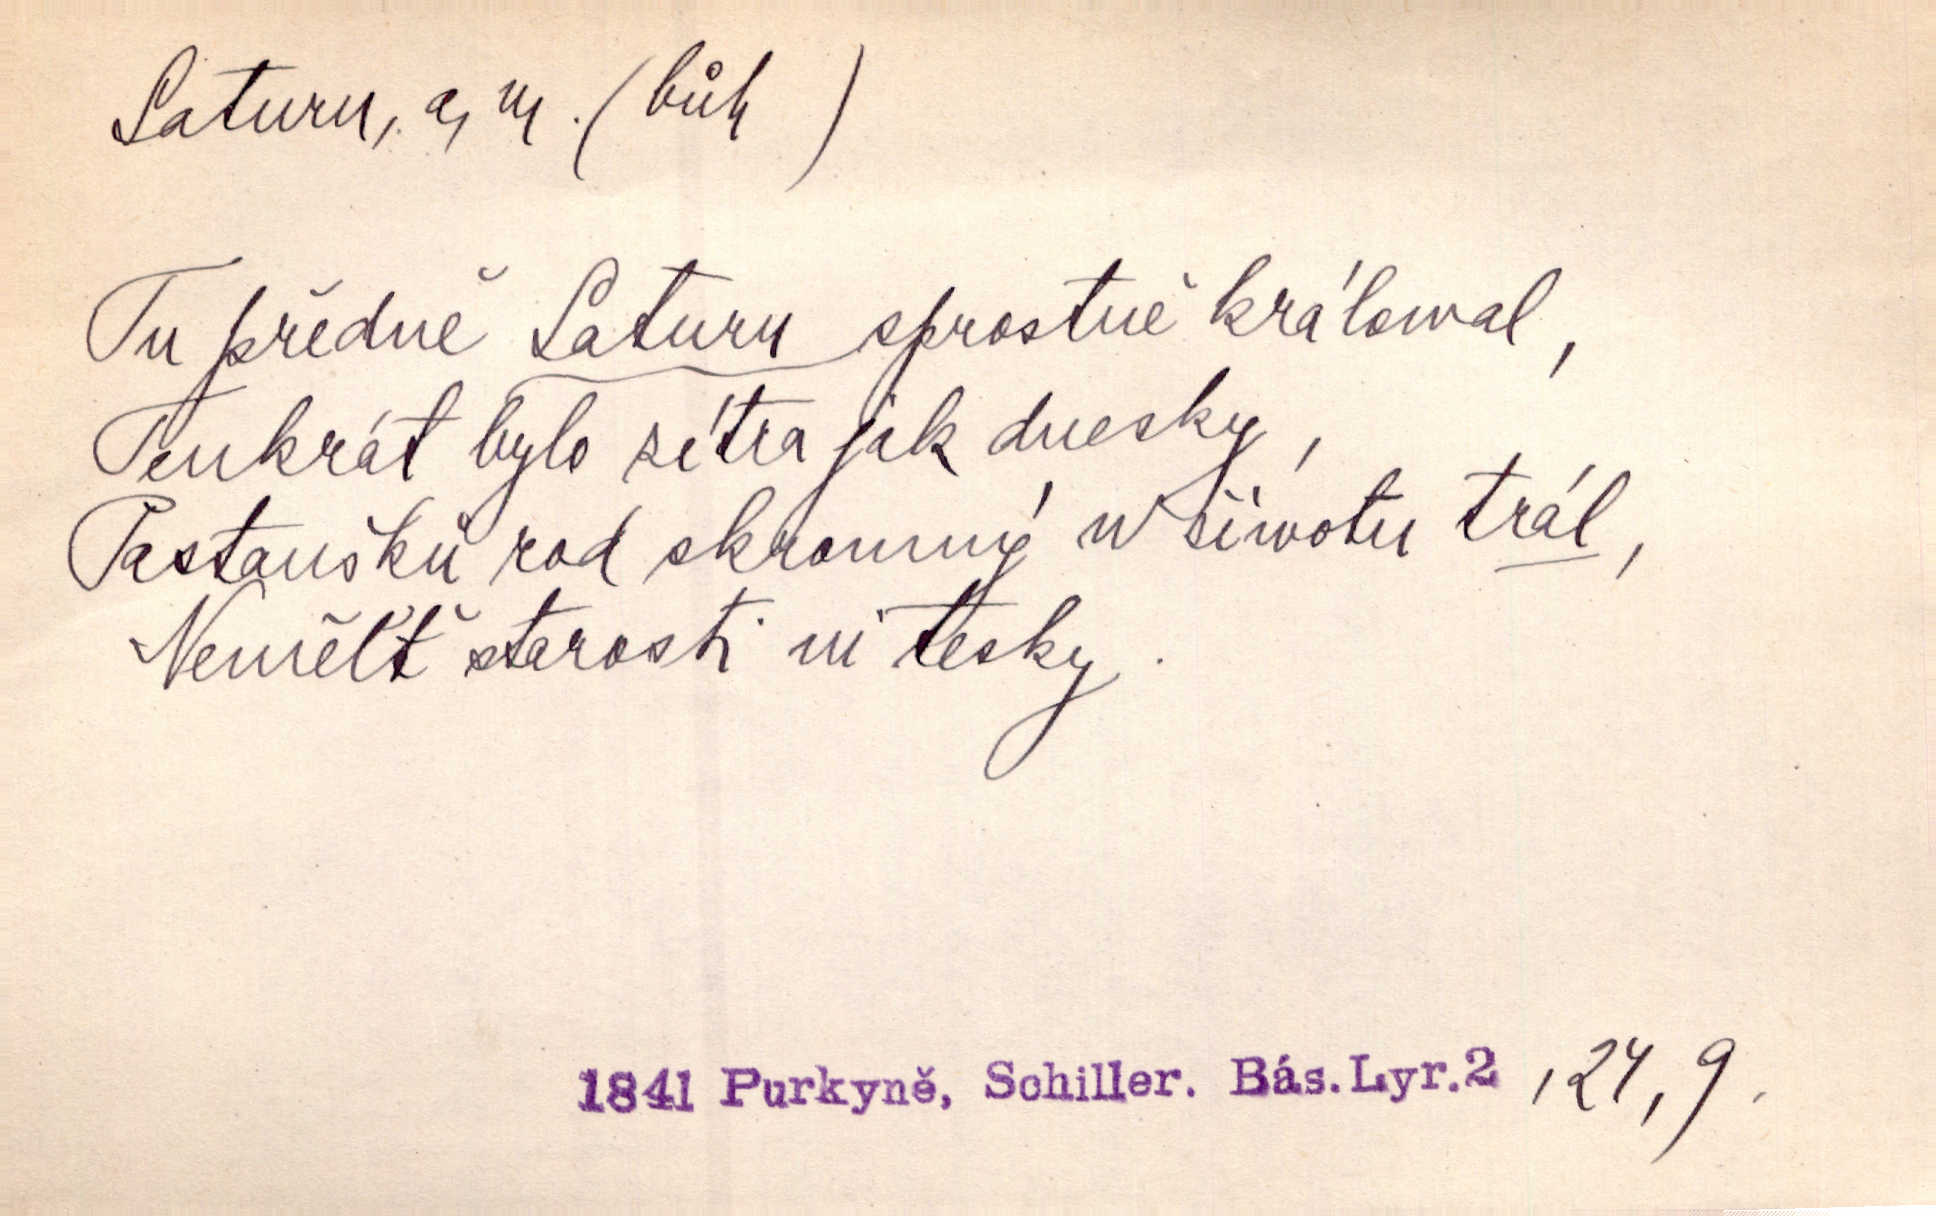 Saturn, a, m. (bůh )
Tu předně Saturn sprostně králowal,
Tenkrát bylo zítra jak dnesky,
Pastoušků rod skromný w žiwotu trál,
Neměltě starosti ni tesky.
1841 Purkyně, Schiller. Bás. Lyr. 2 124, 9.